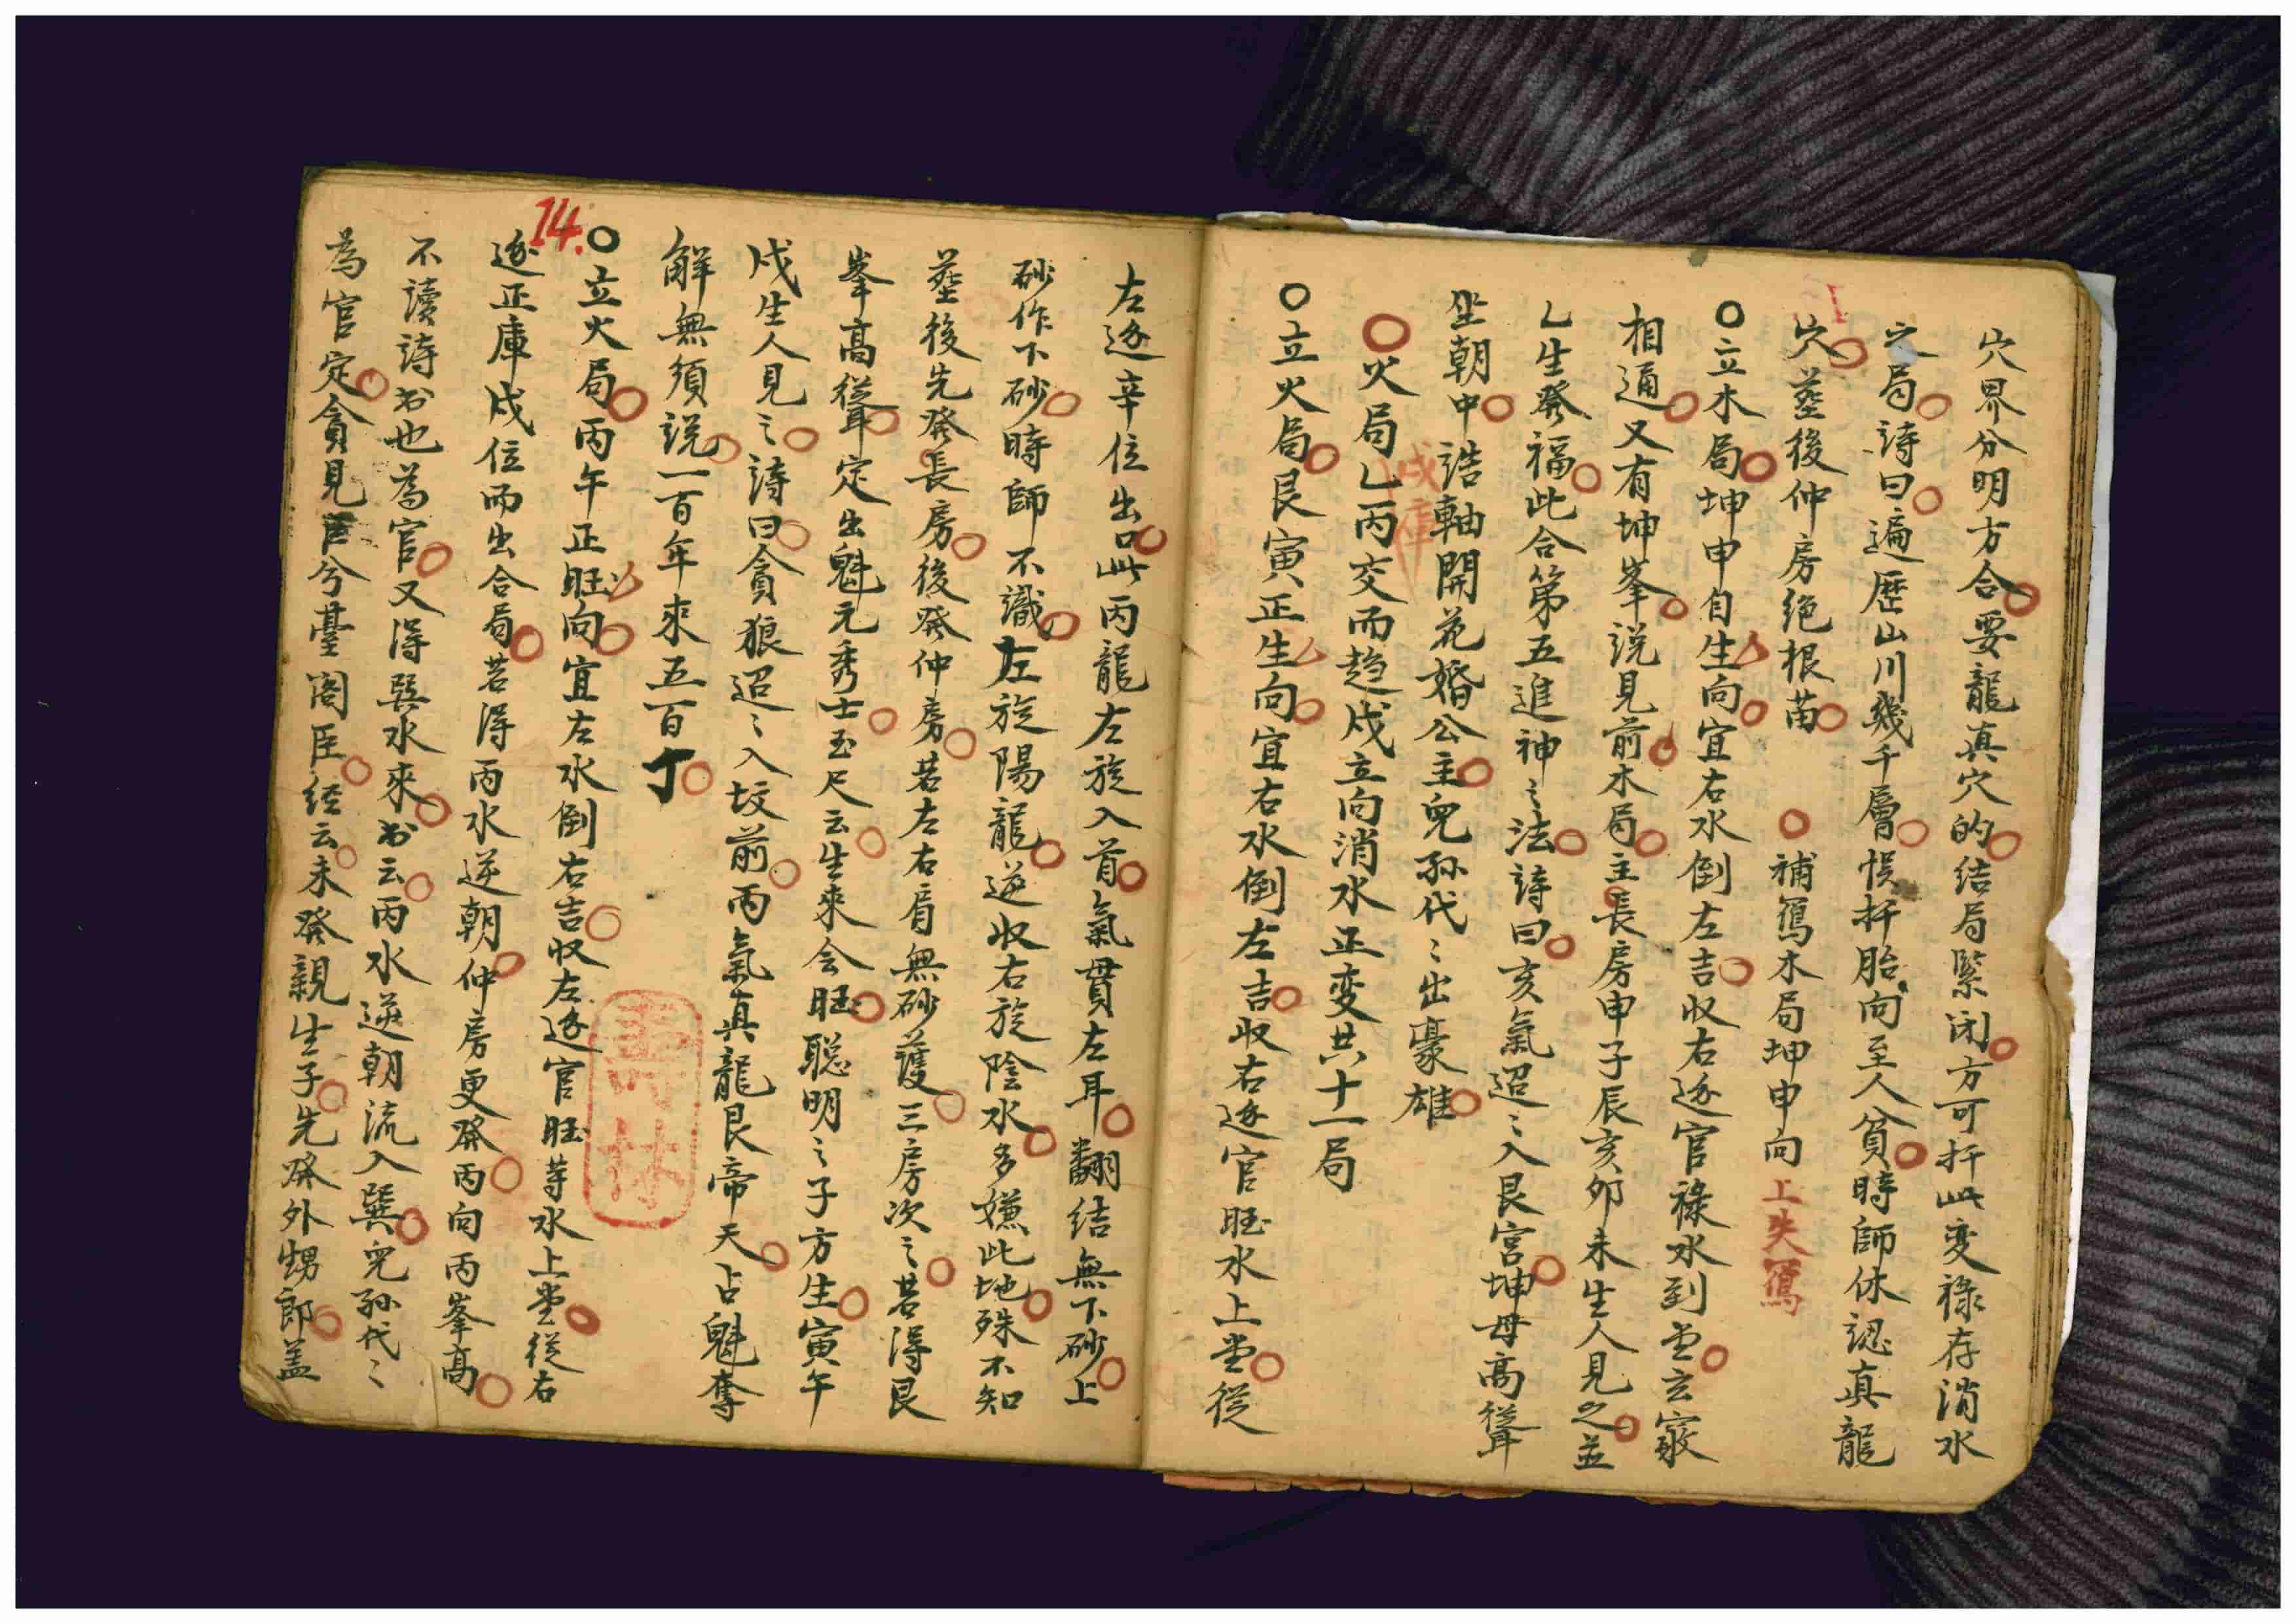 穴界分明方合要龍真穴的結局緊闭方可扦此变祿存消水
穴局詩曰遍歷山川幾千層悮扦胎向至人貧時師休認真龍
穴塟後仲房绝根苗
補寫木局坤申向上失寫
〇立木局坤申自生向宜右水倒左吉收右逆官祿水到堂玄竅
相通又有坤峯说見前木局主長房申子辰亥卯未生人見之並
乙生發福此合第五進神之法詩曰亥氣迢〻入艮宮坤母高聳
坐朝中誥軸開花婚公主兒孙代〻出豪雄
〇火局乙丙交而趋戍立向消水正变共十一局
戍庫
〇立火局艮寅正生向宜右水倒左吉收右逆官旺水上堂從
左逆辛位出此丙龍左旋入首氣貫左耳翻結無下砂上
砂作下砂時師不識左旋陽龍逆收右旋陰水多嫌此地殊不知
塟後先發長房後發仲房若左右肩無砂護三房次之若得艮
峯高聳定出魁元秀士玉尺云生來会旺聪明之子方生寅午
戍生人見之詩曰貪狼迢〻入坟前丙氣真龍艮帝天占魁奪
解無須説一百年來五百丁
14.
〇立火局丙午正旺向宜左水倒右吉收左逆官旺等水上堂從右
逆正庫戍位而出合局若得丙水逆朝仲房更發丙向丙峯高
不讀诗书也為官又得巽水來书云丙水逆朝流入巽兒孙代〻
為官定貪見官兮臺阁臣经云未發親生子先發外甥郎盖